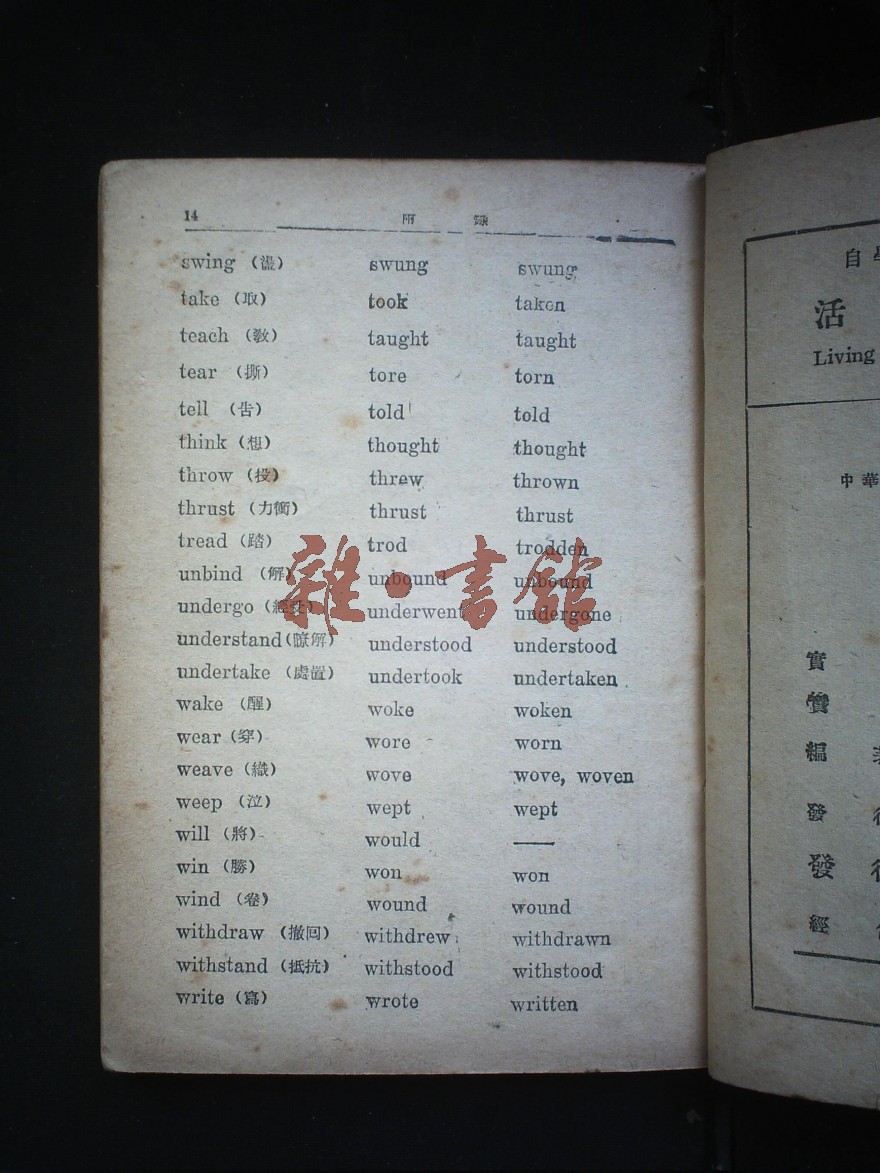 14 附 錄
swing (盪) swung swung
take (取) took taken
teach (敎) taught taught
tear (撕) tore torn
tell (告) told told
think (想) thought thought
throw (投) threw thrown
thrust (力衝) thrust thrust
tread (踏) trod trodden
unbind (解) unbound unbound
undergo (經 underwent undergone
understand(瞭解) understood understood
undertake (處置) undertook undertaken
wake (醒) woke woken
wear (穿) wore worn
weave (織) wove wove, woven
weep (泣) wept wept
will (將) would —
win (勝) won won
wind (卷) wound wound
withdraw (撤回) withdrew withdrawn
withstand (抵抗) withstood withstood
write (寫) wrote written
雜·書館
自學
活
Living
中華
實
編
發
發
經